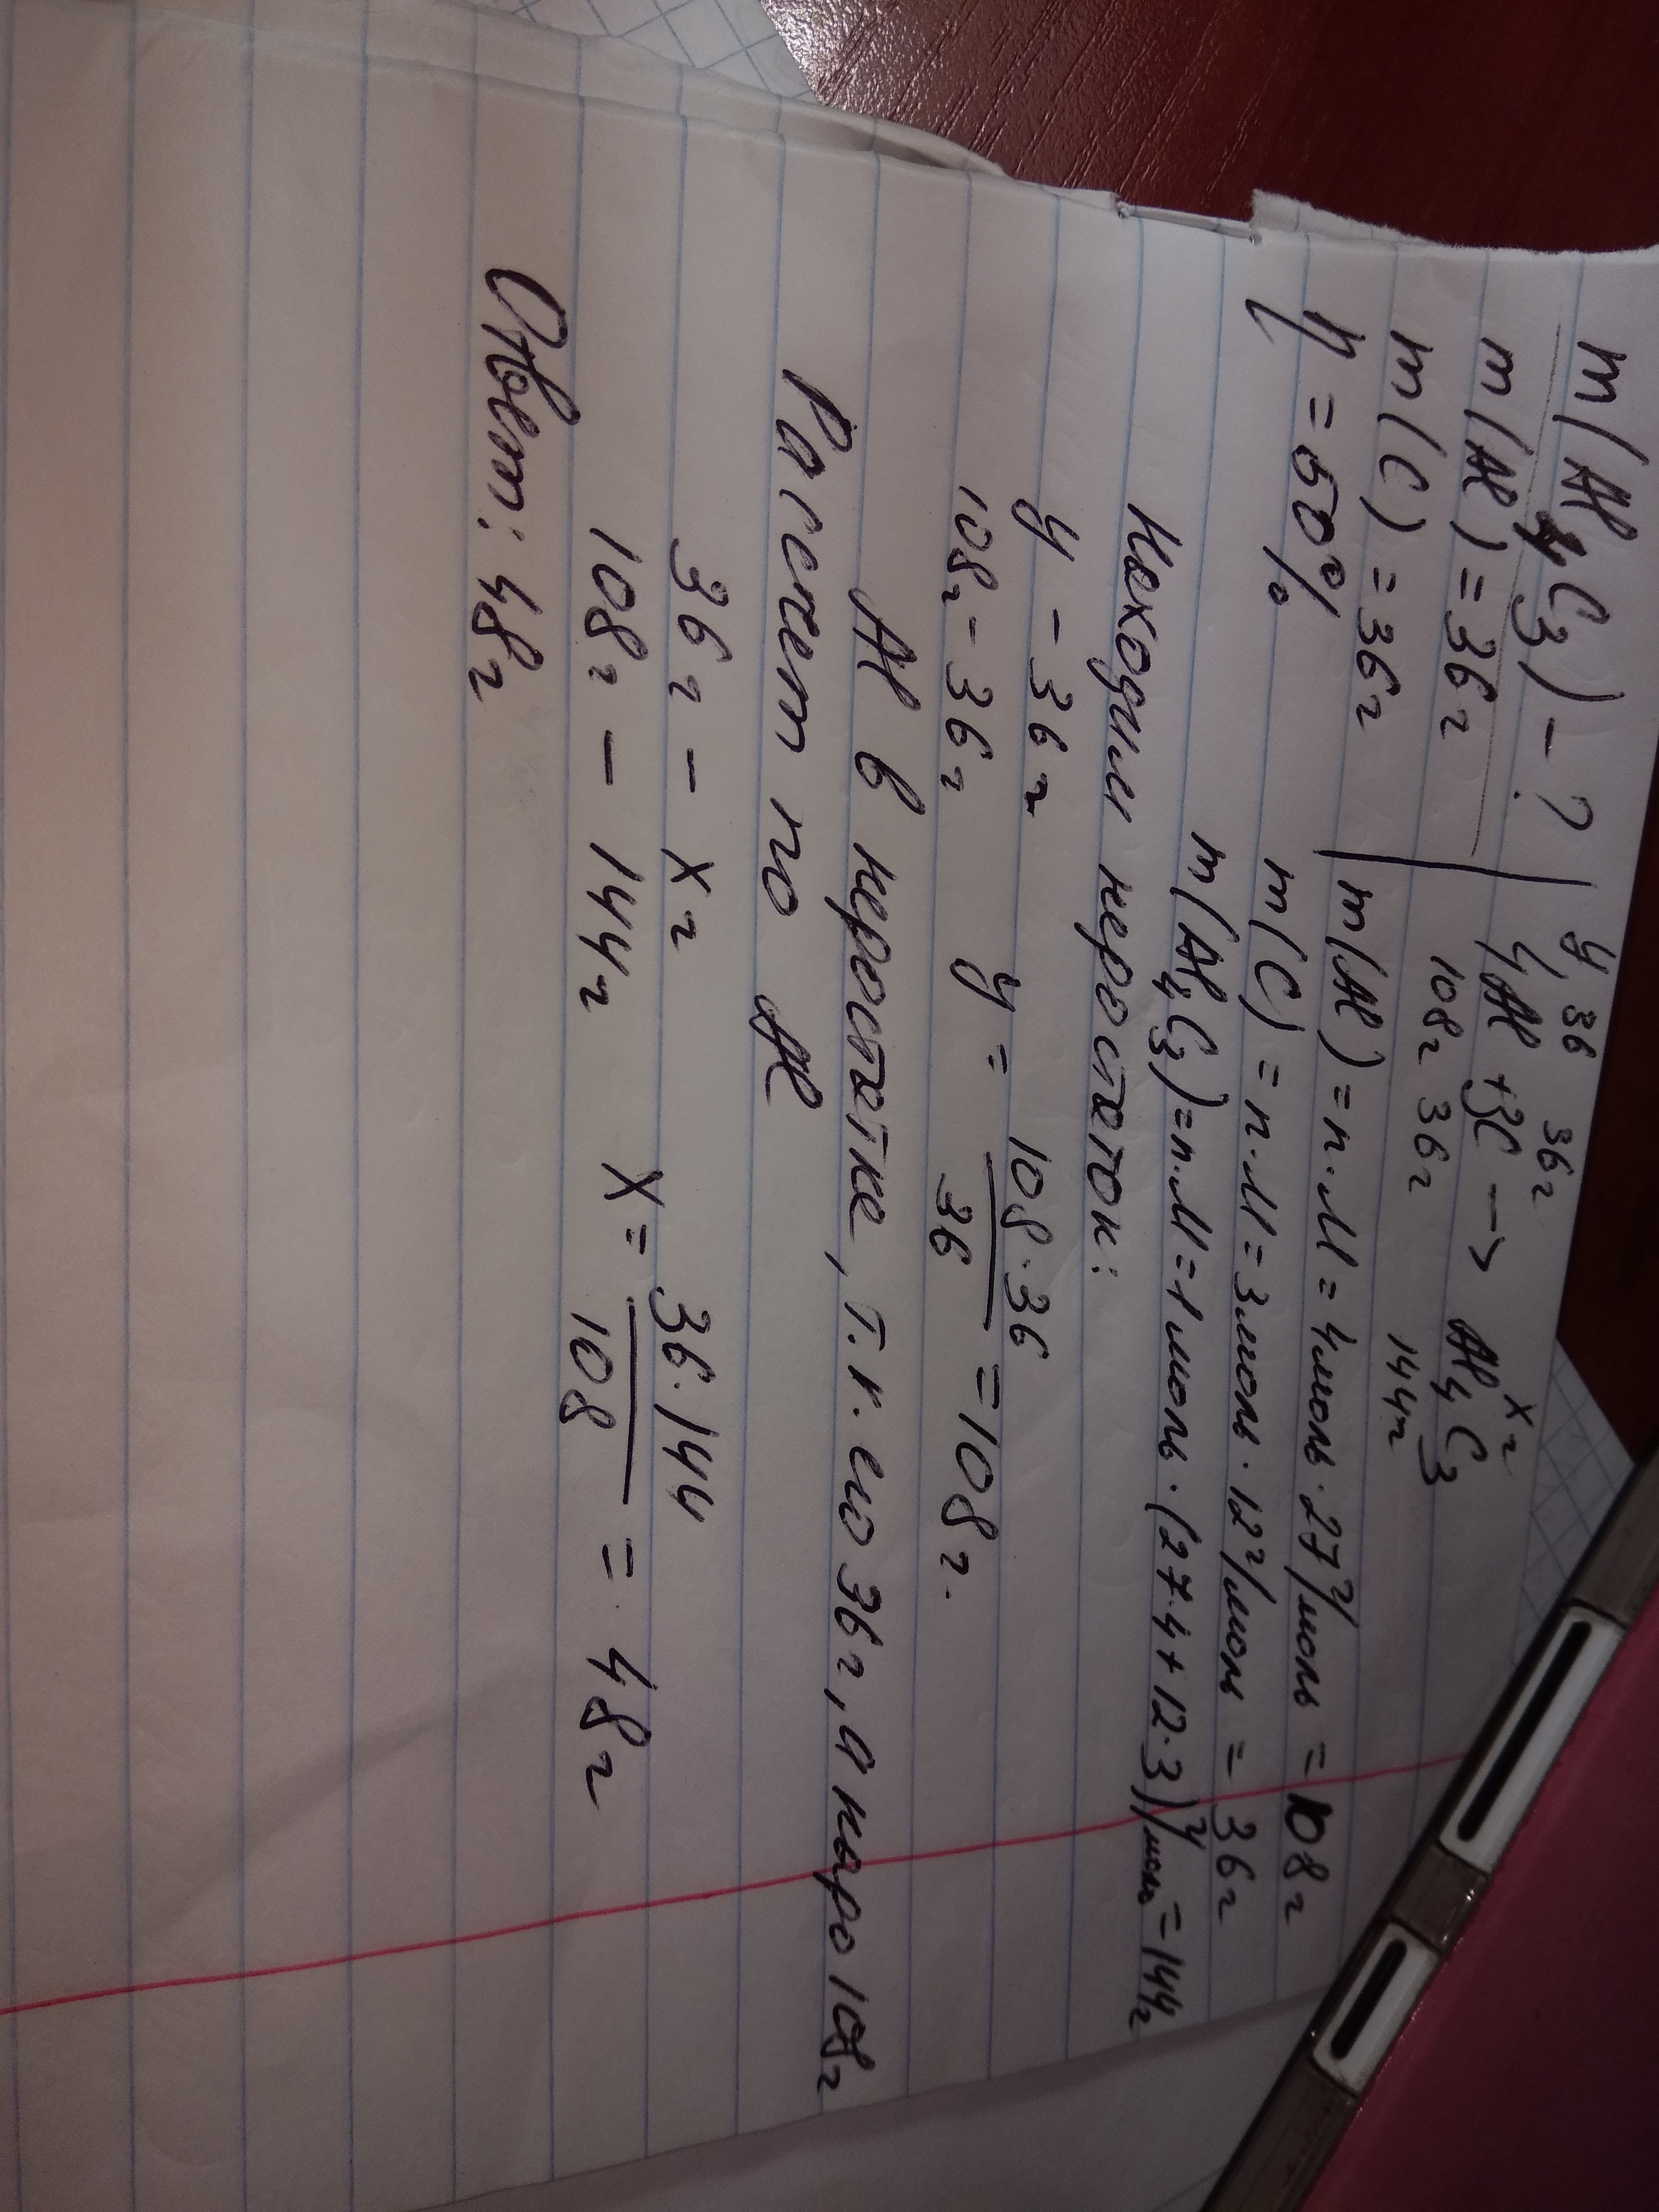 m(Al4C3) - ?
m(Al) = 36г
m(C) = 36г
η = 50%
y 36 36г xг
4Al + 3C → Al4C3
108г 36г 144г
m(Al) = n·M = 4моль · 27г/моль = 108г
m(C) = n·M = 3моль · 12г/моль = 36г
m(Al4C3) = n·M = 1моль · (27·4 + 12·3) г/моль = 144г
Находим недостаток:
y - 36г
108г - 36г
y = 108·36 / 36 = 108г.
Al в недостатке, т.к. его 36г, а надо 108г
Расчет по Al
36г - xг
108г - 144г
x = 36·144 / 108 = 48г
Ответ: 48г